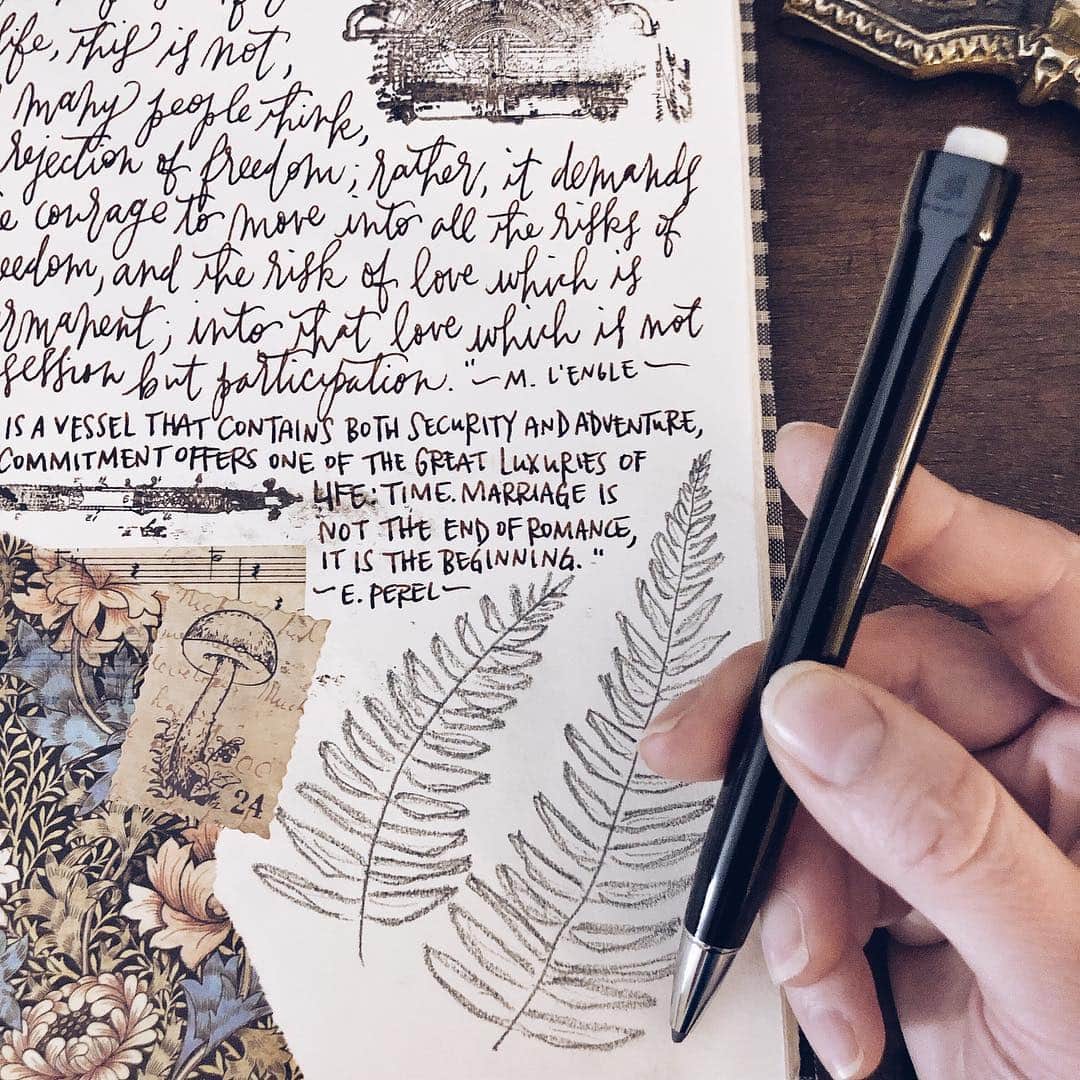 life, this is not,
many people think,
rejection of freedom; rather, it demands
e courage to move into all the risks of
eedom, and the risk of love which is
rmanent; into that love which is not
session but participation." ~ M. L'ENGLE ~
IS A VESSEL THAT CONTAINS BOTH SECURITY AND ADVENTURE,
COMMITMENT OFFERS ONE OF THE GREAT LUXURIES OF
LIFE: TIME. MARRIAGE IS
NOT THE END OF ROMANCE,
IT IS THE BEGINNING."
~ E. PEREL ~
24